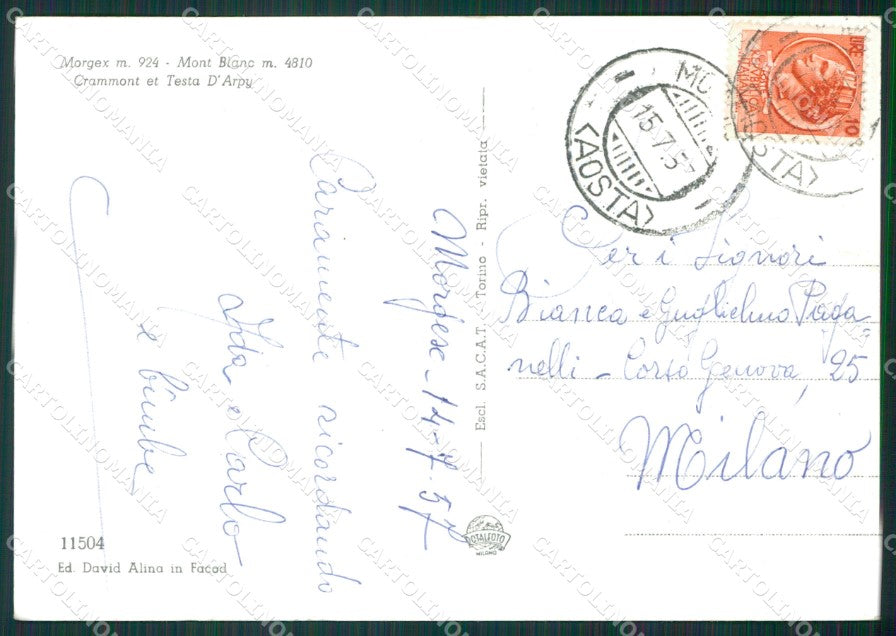 Morgex m. 924 - Mont Blanc m. 4810
Crammont et Testa D'Arpy
Morgex - 14-7-57
Caramente ricordando
Ida e Carlo
e bimbe
11504
Ed. David Alina in Facod
Escl. S.A.C.A.T. - Torino - Ripr. vietata
TOTALFOTO
MILANO
15.7.57
(AOSTA)
LIRE 10
Per i Signori
Bianca e Guglielmo Paga=
nelli - Corso Genova, 25
Milano
CARTOLINOMANIA